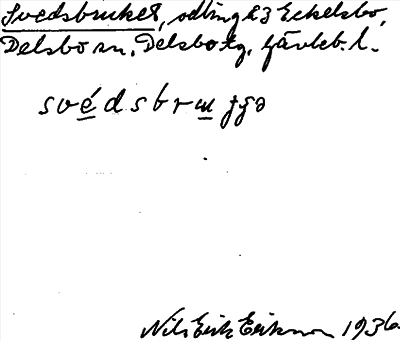 Svedsbruket, odling å 3 Eckelsbo,
Delsbo sn, Delsbo tg, Gävleb. l.
svédsbruɟɟə
Nils Erik Erikson 1936